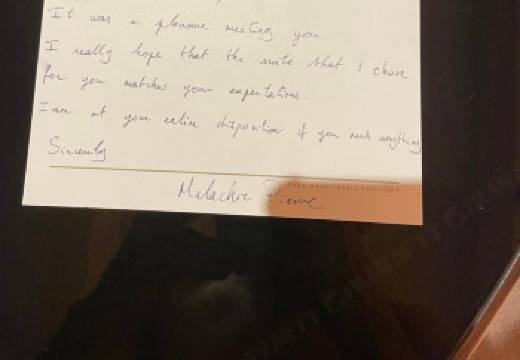 It was a pleasure meeting you.
I really hope that the suite that I chose
for you matches your expectations.
I am at your entire disposition if you need anything
Sincerely
Malachie Pierre